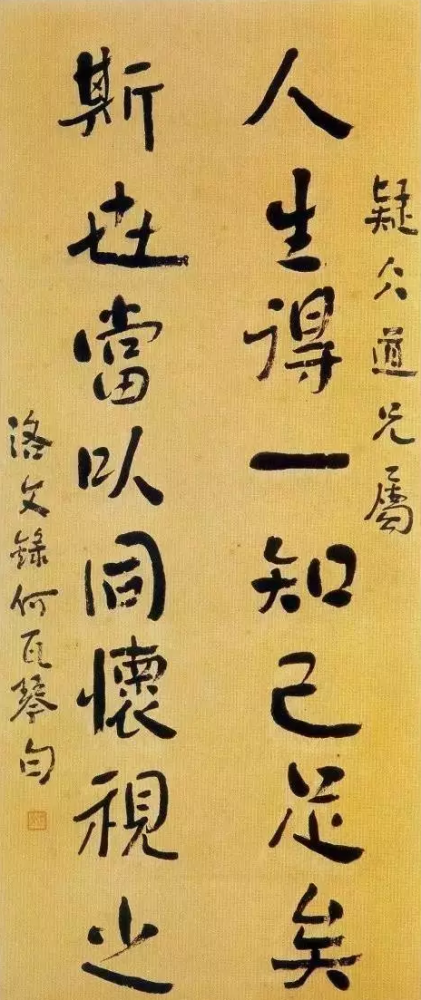 疑久道兄屬
人生得一知己足矣
斯世當以同懷視之
洛文錄何瓦琴句